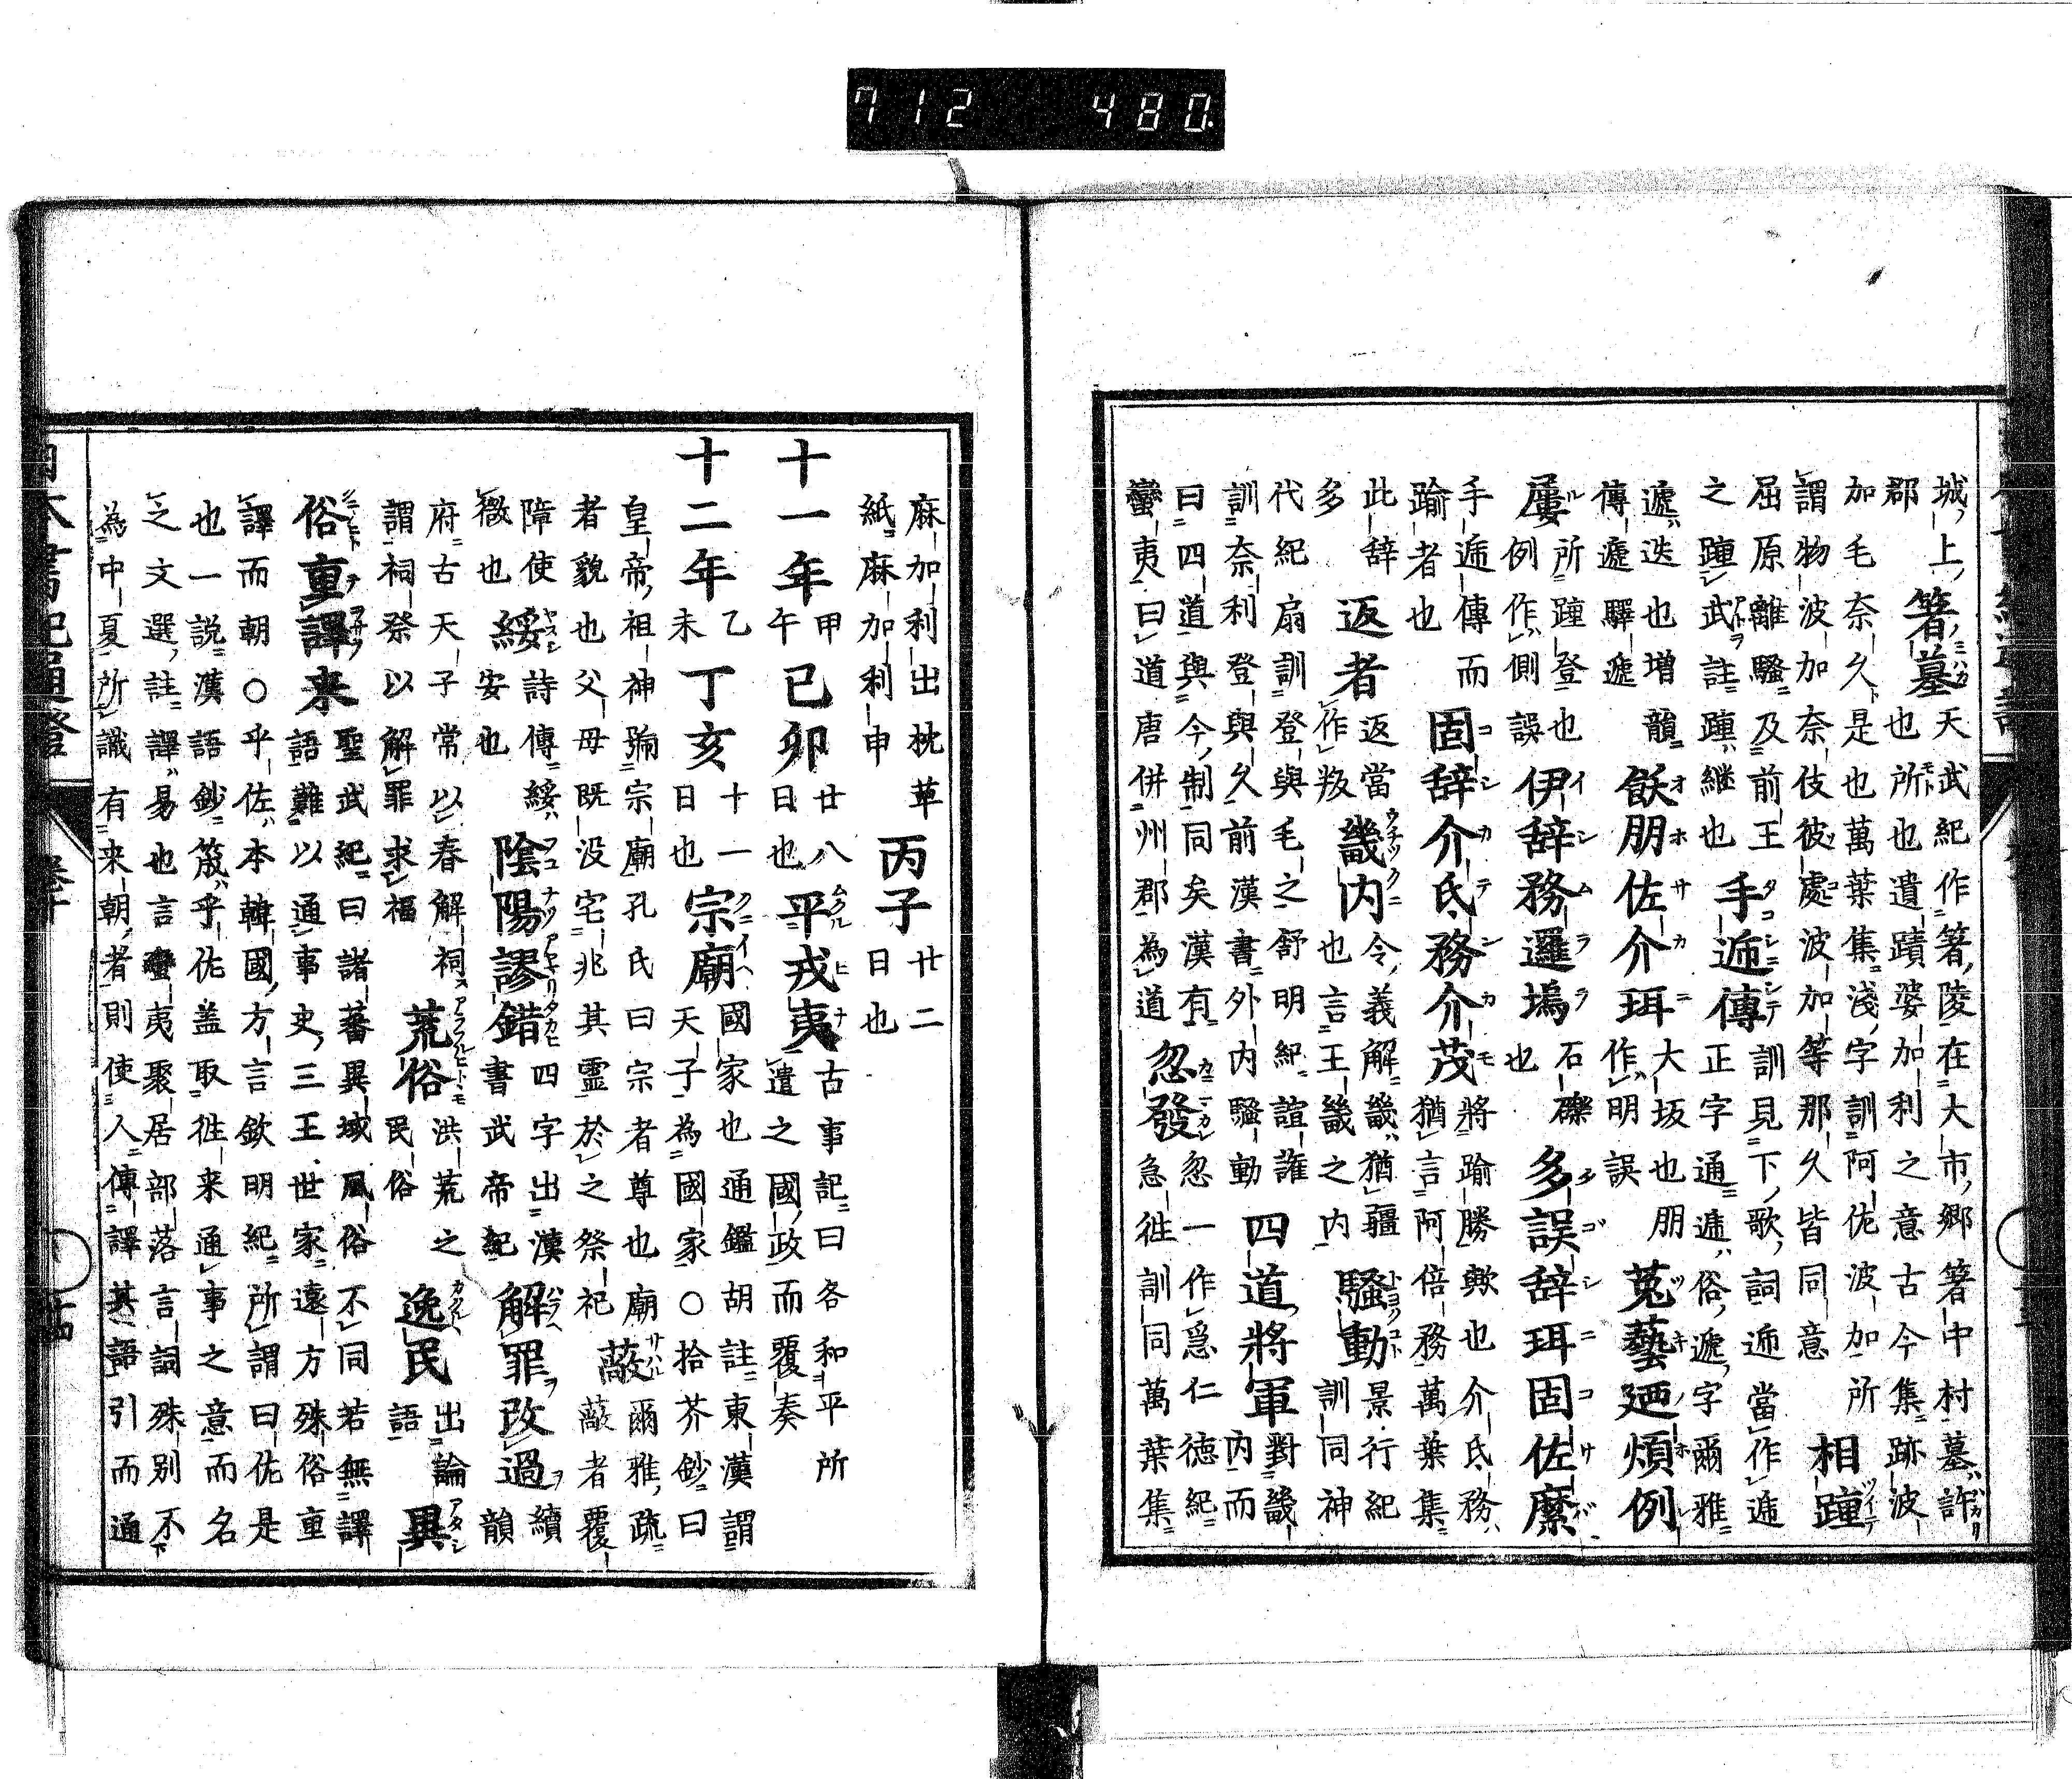 城上郡箸墓天武紀作箸陵在大市郷箸中村墓許也所也遺蹟婆加利之意古今集跡波
加毛奈久是也萬葉集浅字訓阿佐波加所謂物波加奈伎彼處波加等那久皆同意相踵
屈原離騷及前王之踵武註踵継也手逓傳訓見下歌詞逓當作逓正字通遞俗遞字爾雅
遞迭也増韻傳遞驛遞飫朋佐介珥大坂也朋作明誤菟藝廼煩例
屢所踵登也例作側誤伊辞務邏塢石礫也多誤辞珥固佐縻
手逓傳而踰者也固辞介氐務介茂將踰勝歟也介氐務猶言阿倍務萬葉集
此辞多返者返當作叛畿内令義解畿猶疆也言王畿之内騷動景行紀訓同神
代紀扇訓登與毛之舒明紀諠誰訓奈利登與久前漢書外内騷動四道將軍對畿内而
曰四道與今制同矣漢有蠻夷曰道唐併州郡為道忽發忽一作爲仁徳紀急往訓同萬葉集
麻加利出枕草紙麻加利申丙子廿二日也
十一年甲午已卯廿八日也平戎夷古事記曰各和平所遣之國政而覆奏
十二年乙未丁亥十一日也宗廟國家也通鑑胡註東漢謂天子為國家○拾芥鈔曰
皇帝祖神號宗廟孔氏曰宗者尊也廟者貌也父母既没宅兆其霊於之祭祀蔽爾雅疏蔽者覆
障使徴也綏詩傳綏安也陰陽謬錯四字出漢書武帝紀解罪改過續韻
府古天子常以春解祠謂祠祭以解罪求福荒俗洪荒之民俗逸民出論語異
俗重譯来聖武紀曰諸蕃異域風俗不同若無譯語難以通事史三王世家遠方殊俗重
譯而朝○乎佐本韓國方言欽明紀所謂曰佐是也一説漢語鈔筬乎佐盖取往来通事之意而名
之文選註譯易也言蠻夷聚居部落言詞殊別不為中夏所識有来朝者則使人傳譯其語引而通
日本書紀通證
712 480